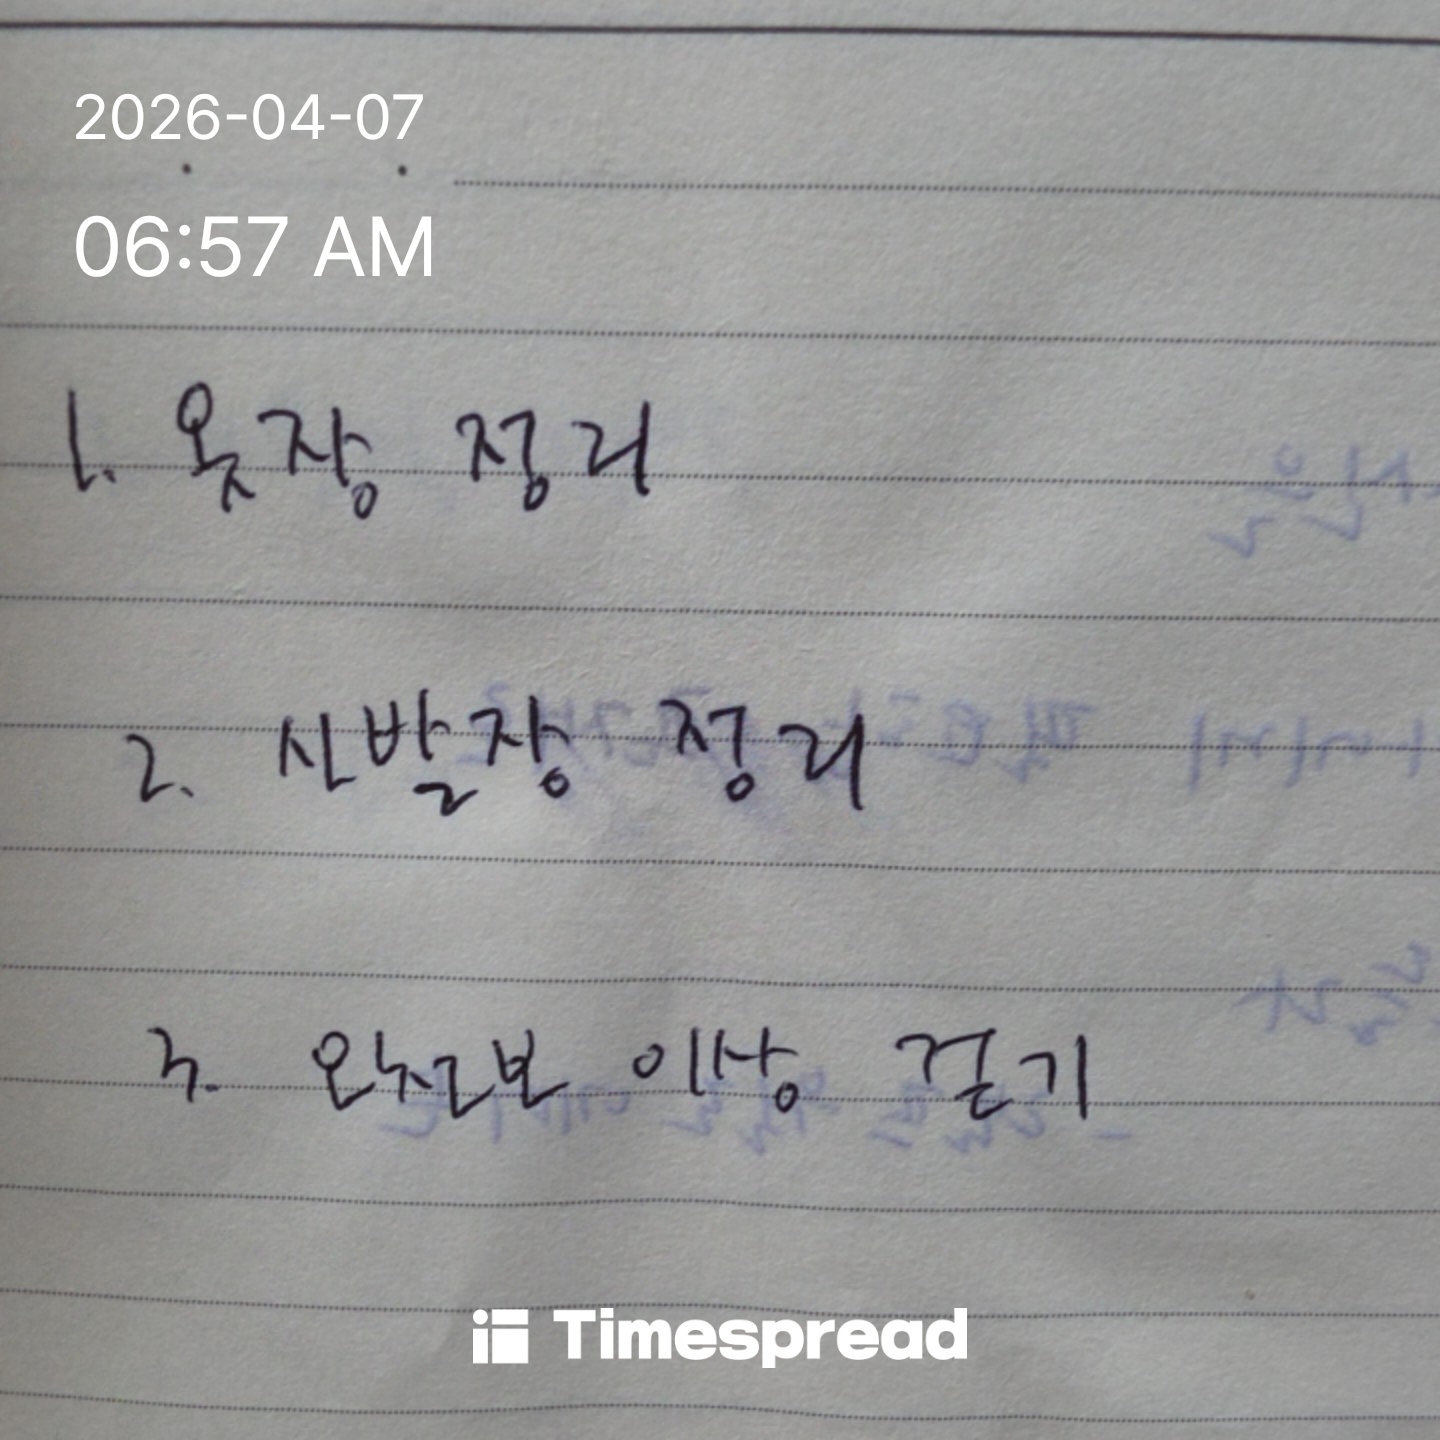 2026-04-07
06:57 AM
1. 옷장 정리
2. 신발장 정리
3. 오천보 이상 걷기
Timespread